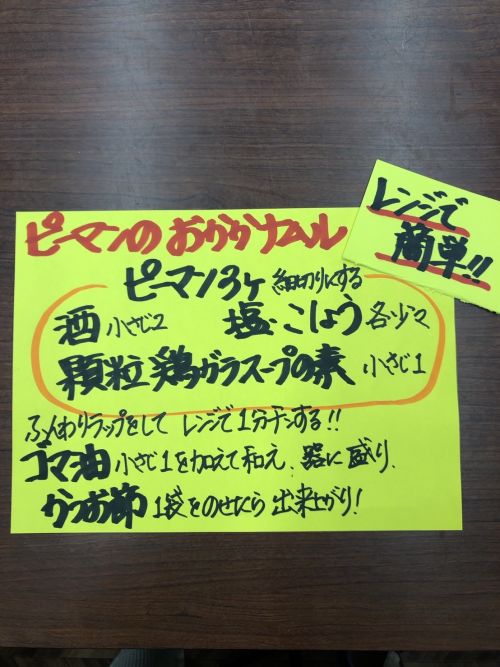 レンジで
簡単!!
ピーマンの おかかナムル
ピーマン 3ヶ 細切りにする
酒 小さじ2 塩・こしょう 各少々
顆粒 鶏ガラスープの素 小さじ1
ふんわりラップをして レンジで1分チンする!!
ゴマ油 小さじ1を加えて和え、器に盛り、
かつお節 1袋をのせたら 出来上がり!